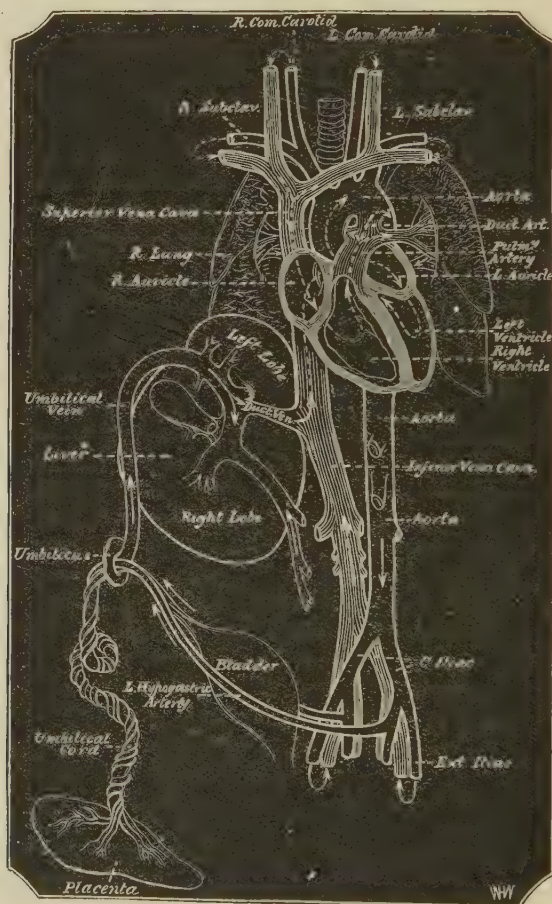 R. Com. Carotid
L. Com. Carotid
R. Subclav.
L. Subclav
Superior Vena Cava
Aorta
Duct. Art.
R. Lung
Pulmy
Artery
R. Auricle
L. Auricle
Left
Ventricle
Right
Ventricle
Left Lobe
Umbilical
Vein
Duct. Ven
Aorta
Liver
Inferior Vena Cava
Right Lobe
Aorta
Umbilicus
Bladder
C. Iliac
L. Hypogastric
Artery
Umbilical
Cord
Ext. Iliac
Placenta